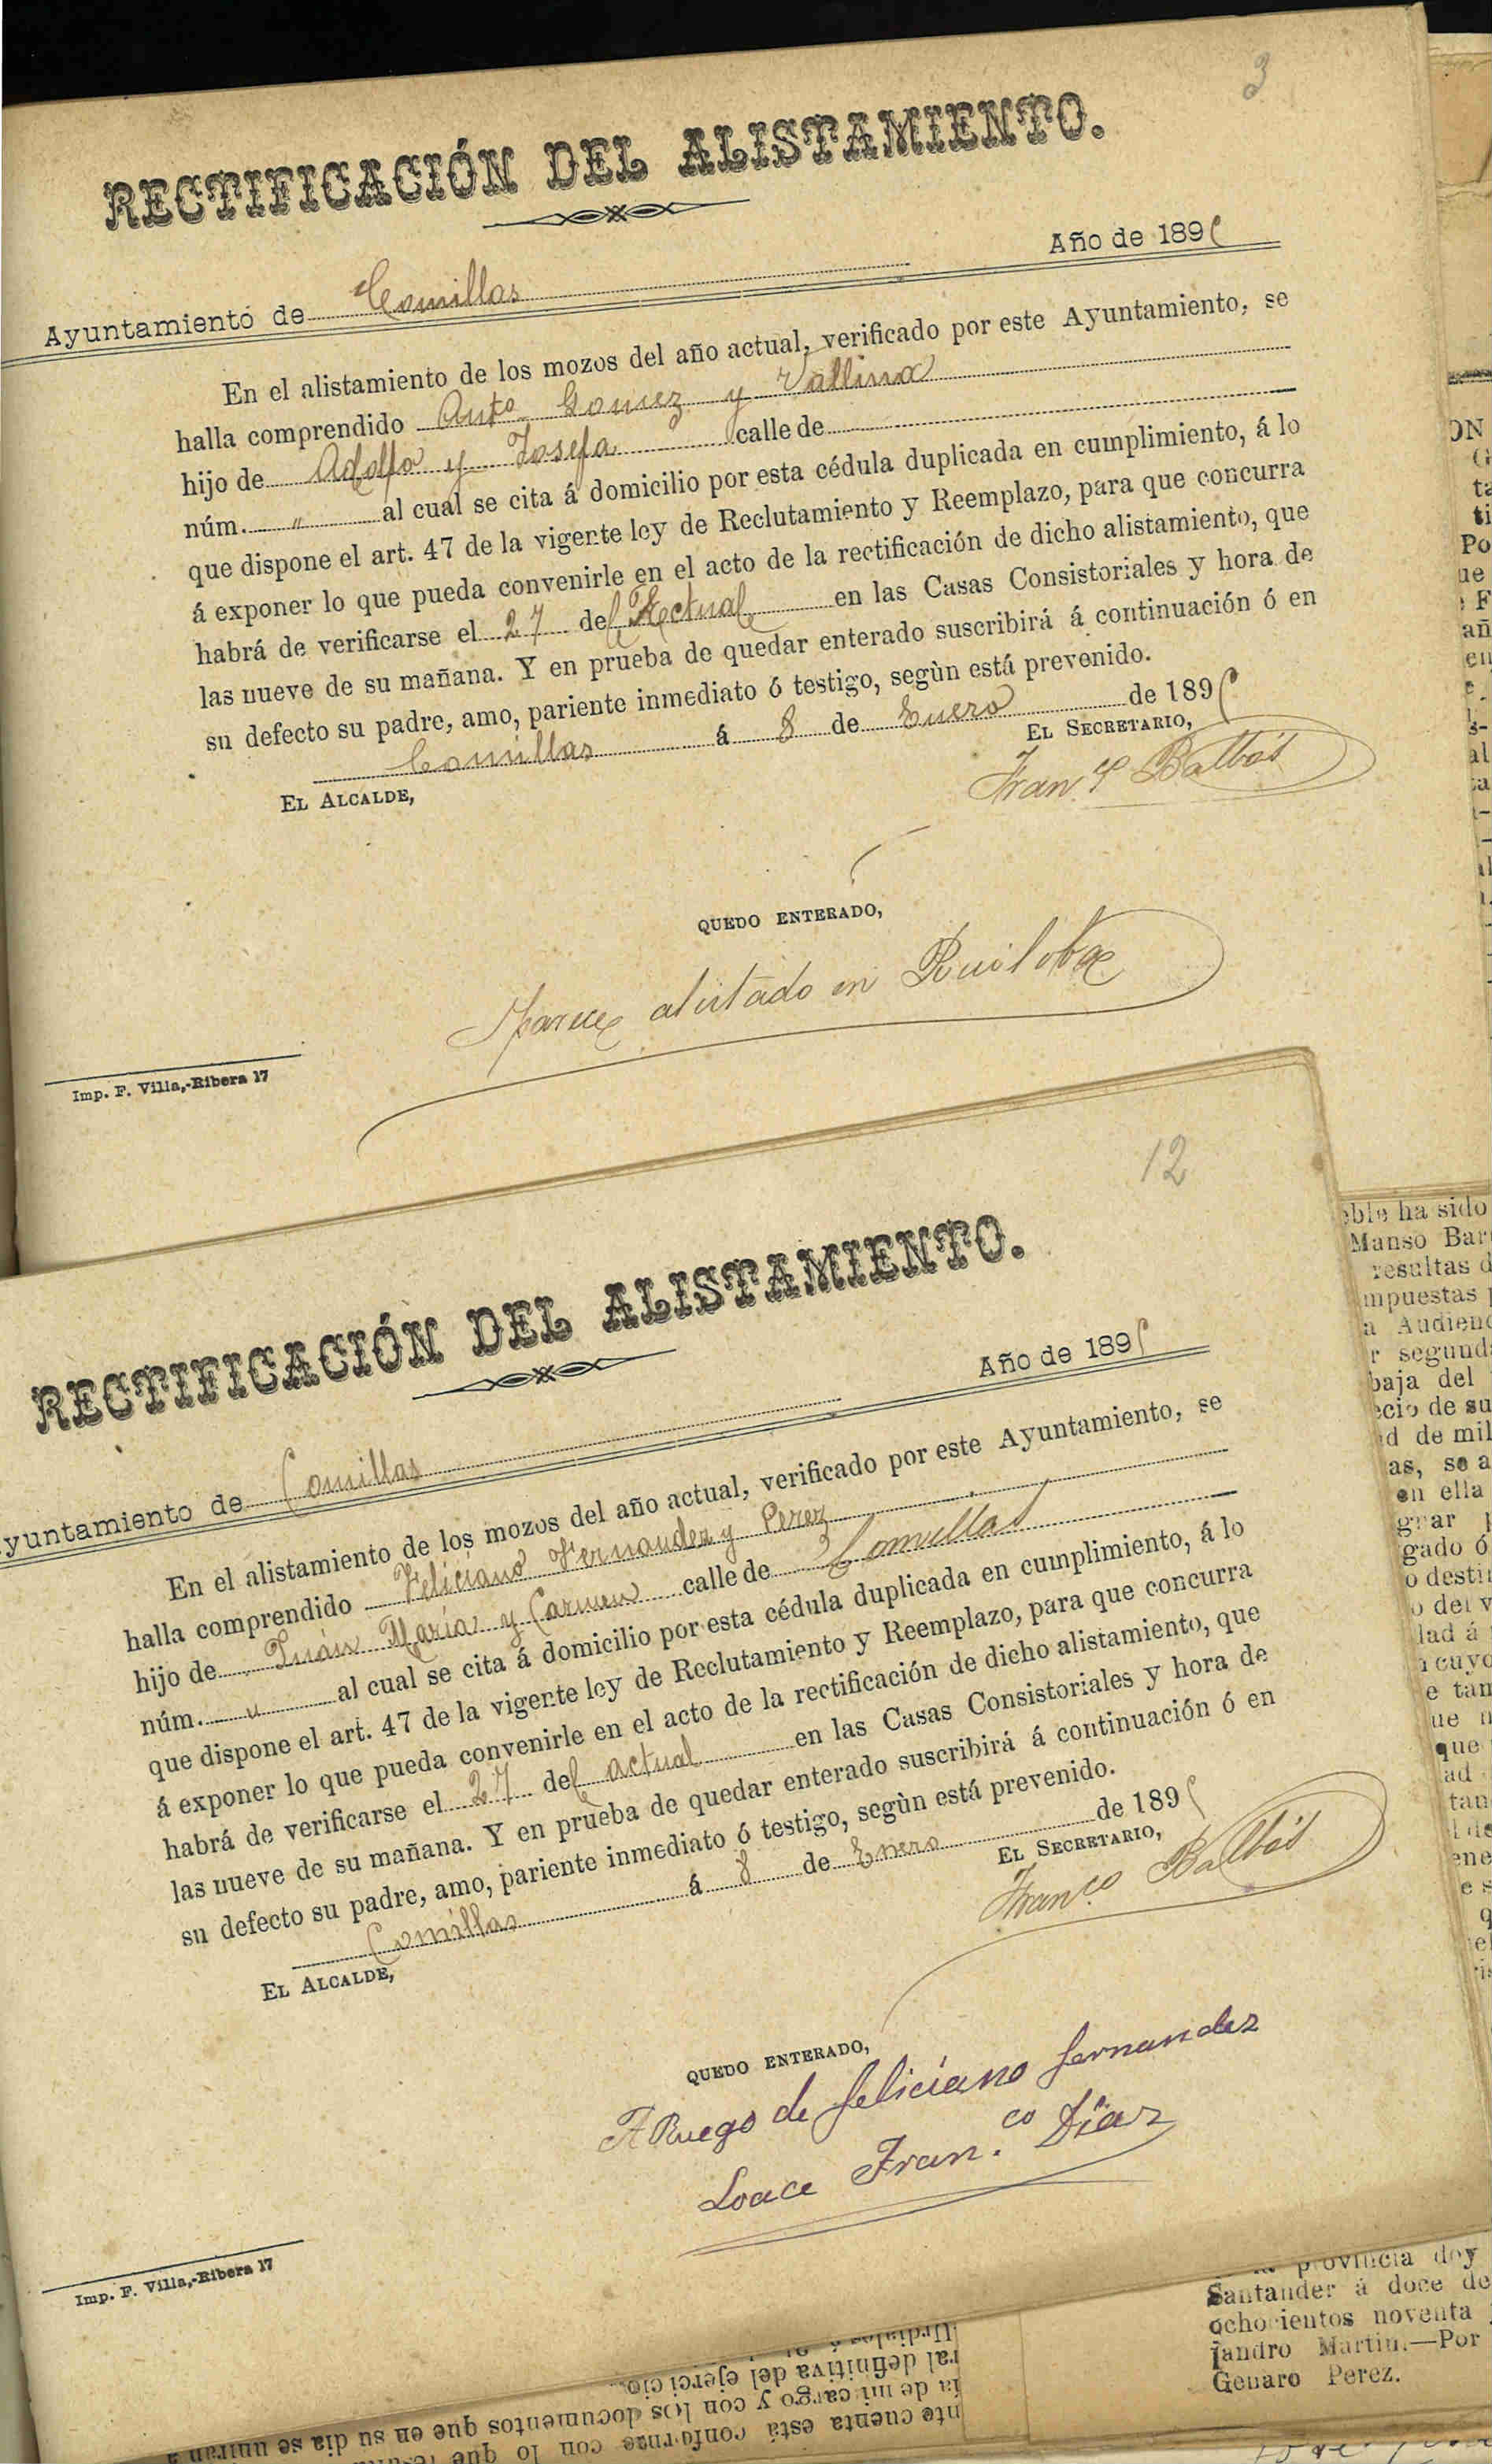 3
RECTIFICACIÓN DEL ALISTAMIENTO.
Año de 1895
Ayuntamiento de Comillas
En el alistamiento de los mozos del año actual, verificado por este Ayuntamiento, se
halla comprendido Antº Gomez y Vallina
hijo de Adolfo y Josefa calle de
núm. " al cual se cita á domicilio por esta cédula duplicada en cumplimiento, á lo
que dispone el art. 47 de la vigente ley de Reclutamiento y Reemplazo, para que concurra
á exponer lo que pueda convenirle en el acto de la rectificación de dicho alistamiento, que
habrá de verificarse el 27 del Actual en las Casas Consistoriales y hora de
las nueve de su mañana. Y en prueba de quedar enterado suscribirá á continuación ó en
su defecto su padre, amo, pariente inmediato ó testigo, segùn está prevenido.
Comillas á 8 de Enero de 1895
EL ALCALDE, EL SECRETARIO,
Franco Balbás
QUEDO ENTERADO,
Aparece alistado en Ruiloba
Imp. F. Villa,-Ribera 17
12
RECTIFICACIÓN DEL ALISTAMIENTO.
Año de 1895
yuntamiento de Comillas
En el alistamiento de los mozos del año actual, verificado por este Ayuntamiento, se
halla comprendido Feliciano Fernandez y Perez
hijo de Juán María y Carmen calle de Comillas
núm. " al cual se cita á domicilio por esta cédula duplicada en cumplimiento, á lo
que dispone el art. 47 de la vigente ley de Reclutamiento y Reemplazo, para que concurra
á exponer lo que pueda convenirle en el acto de la rectificación de dicho alistamiento, que
habrá de verificarse el 27 del actual en las Casas Consistoriales y hora de
las nueve de su mañana. Y en prueba de quedar enterado suscribirá á continuación ó en
su defecto su padre, amo, pariente inmediato ó testigo, segùn está prevenido.
Comillas á 8 de Enero de 1895
EL ALCALDE, EL SECRETARIO,
Fran.co Balbás
QUEDO ENTERADO,
A Ruego de feliciano fernandez
Loace Fran.co Díaz
Imp. F. Villa,-Ribera 17
ble ha sido
Manso Bar
resultas d
mpuestas
a Audienc
r segund
baja del
ecio de su
d de mil
as, se a
en ella
grar
gado ó
o desti
o del v
lad á
cuyo
e tan
ue
que
ad
tan
provincia doy
Santander á doce de
ochocientos noventa
jandro Martin.—Por
Genaro Perez.
ral definitiva del ejercicio
ía de mi cargo y con los documentos que en su dia se unirán
nte cuenta está conforme con lo que